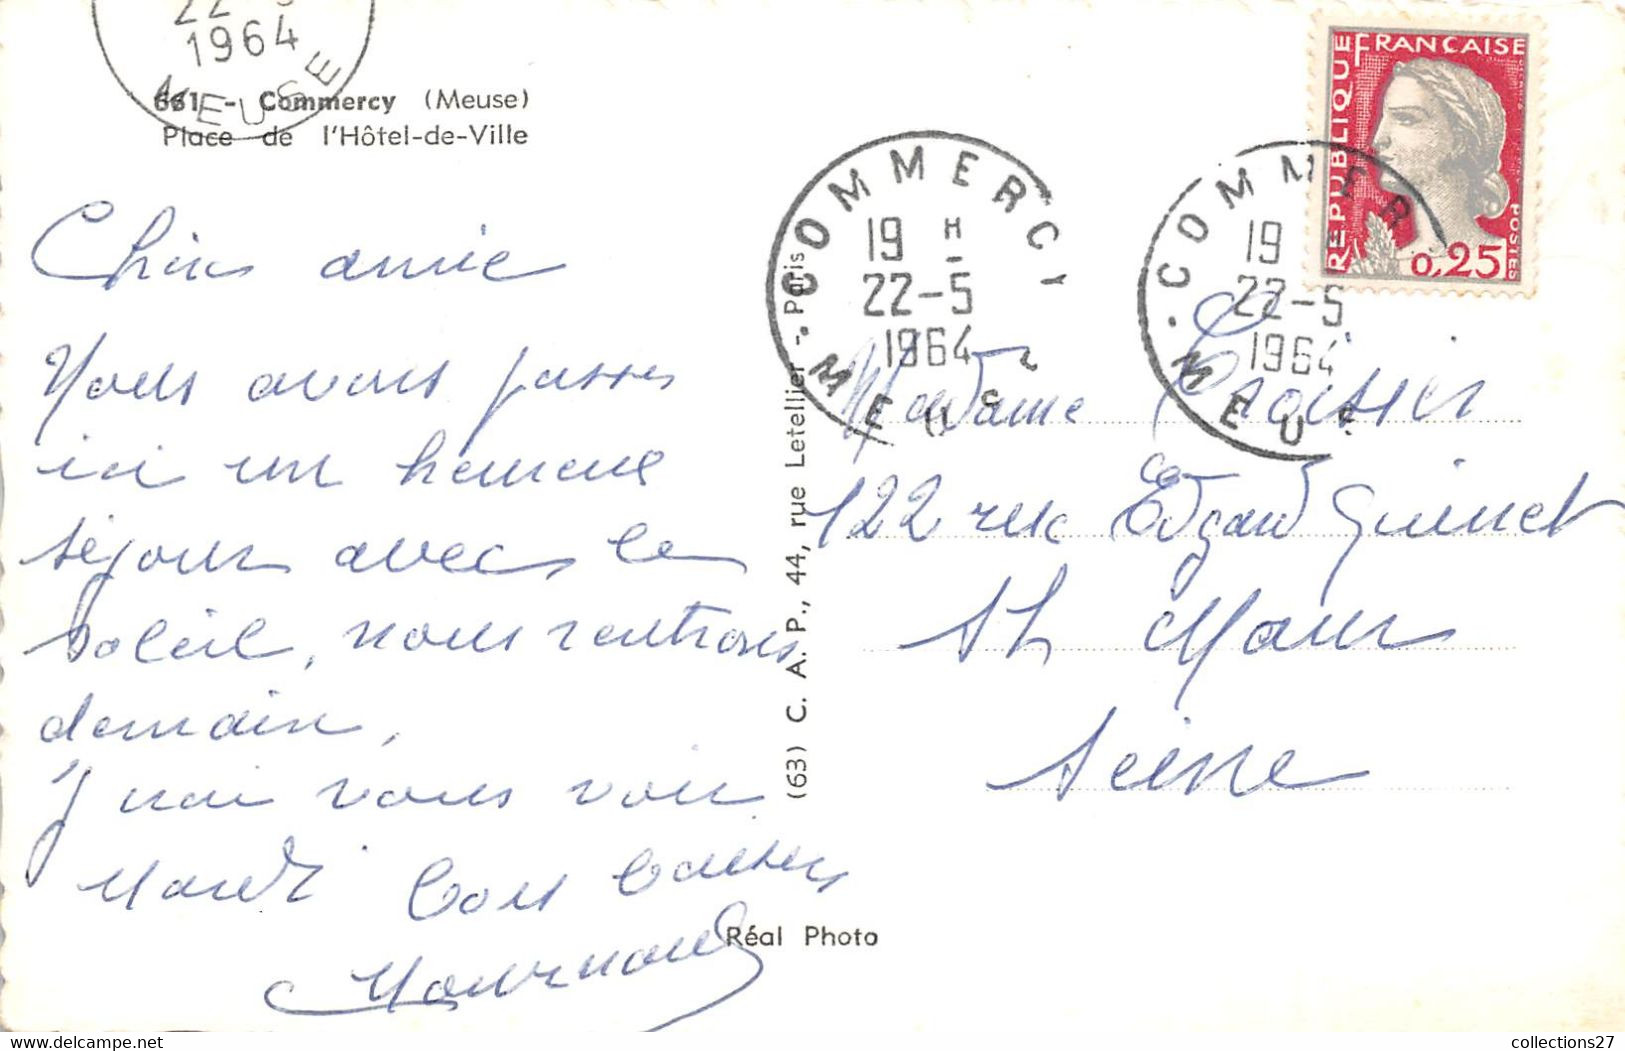 22-5
1964
MEUSE
661 - Commercy (Meuse)
Place de l'Hôtel-de-Ville
Chère amie
Nous avons passés
ici un heureux
séjour avec le
soleil, nous rentrons
demain,
J'irai vous voir
Mardi bons baisers
(63) C. A. P., 44, rue Letellier - Paris
Réal Photo
COMMERCY
19 H
22-5
1964
MEUS
COMMER
19
22-5
1964
MEUS
REPUBLIQUE FRANÇAISE
POSTES
0,25
Madame Croisier
122 rue Edgard Quinet
St Maur
Seine
collections27